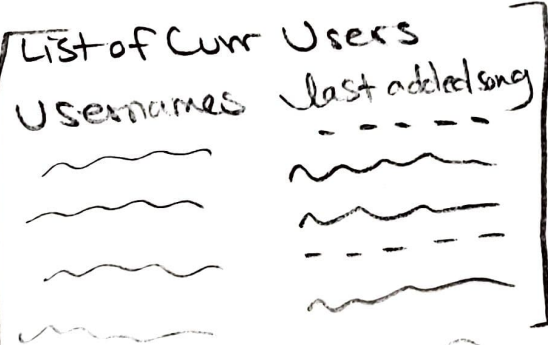 List of Curr Users
Usernames last added song